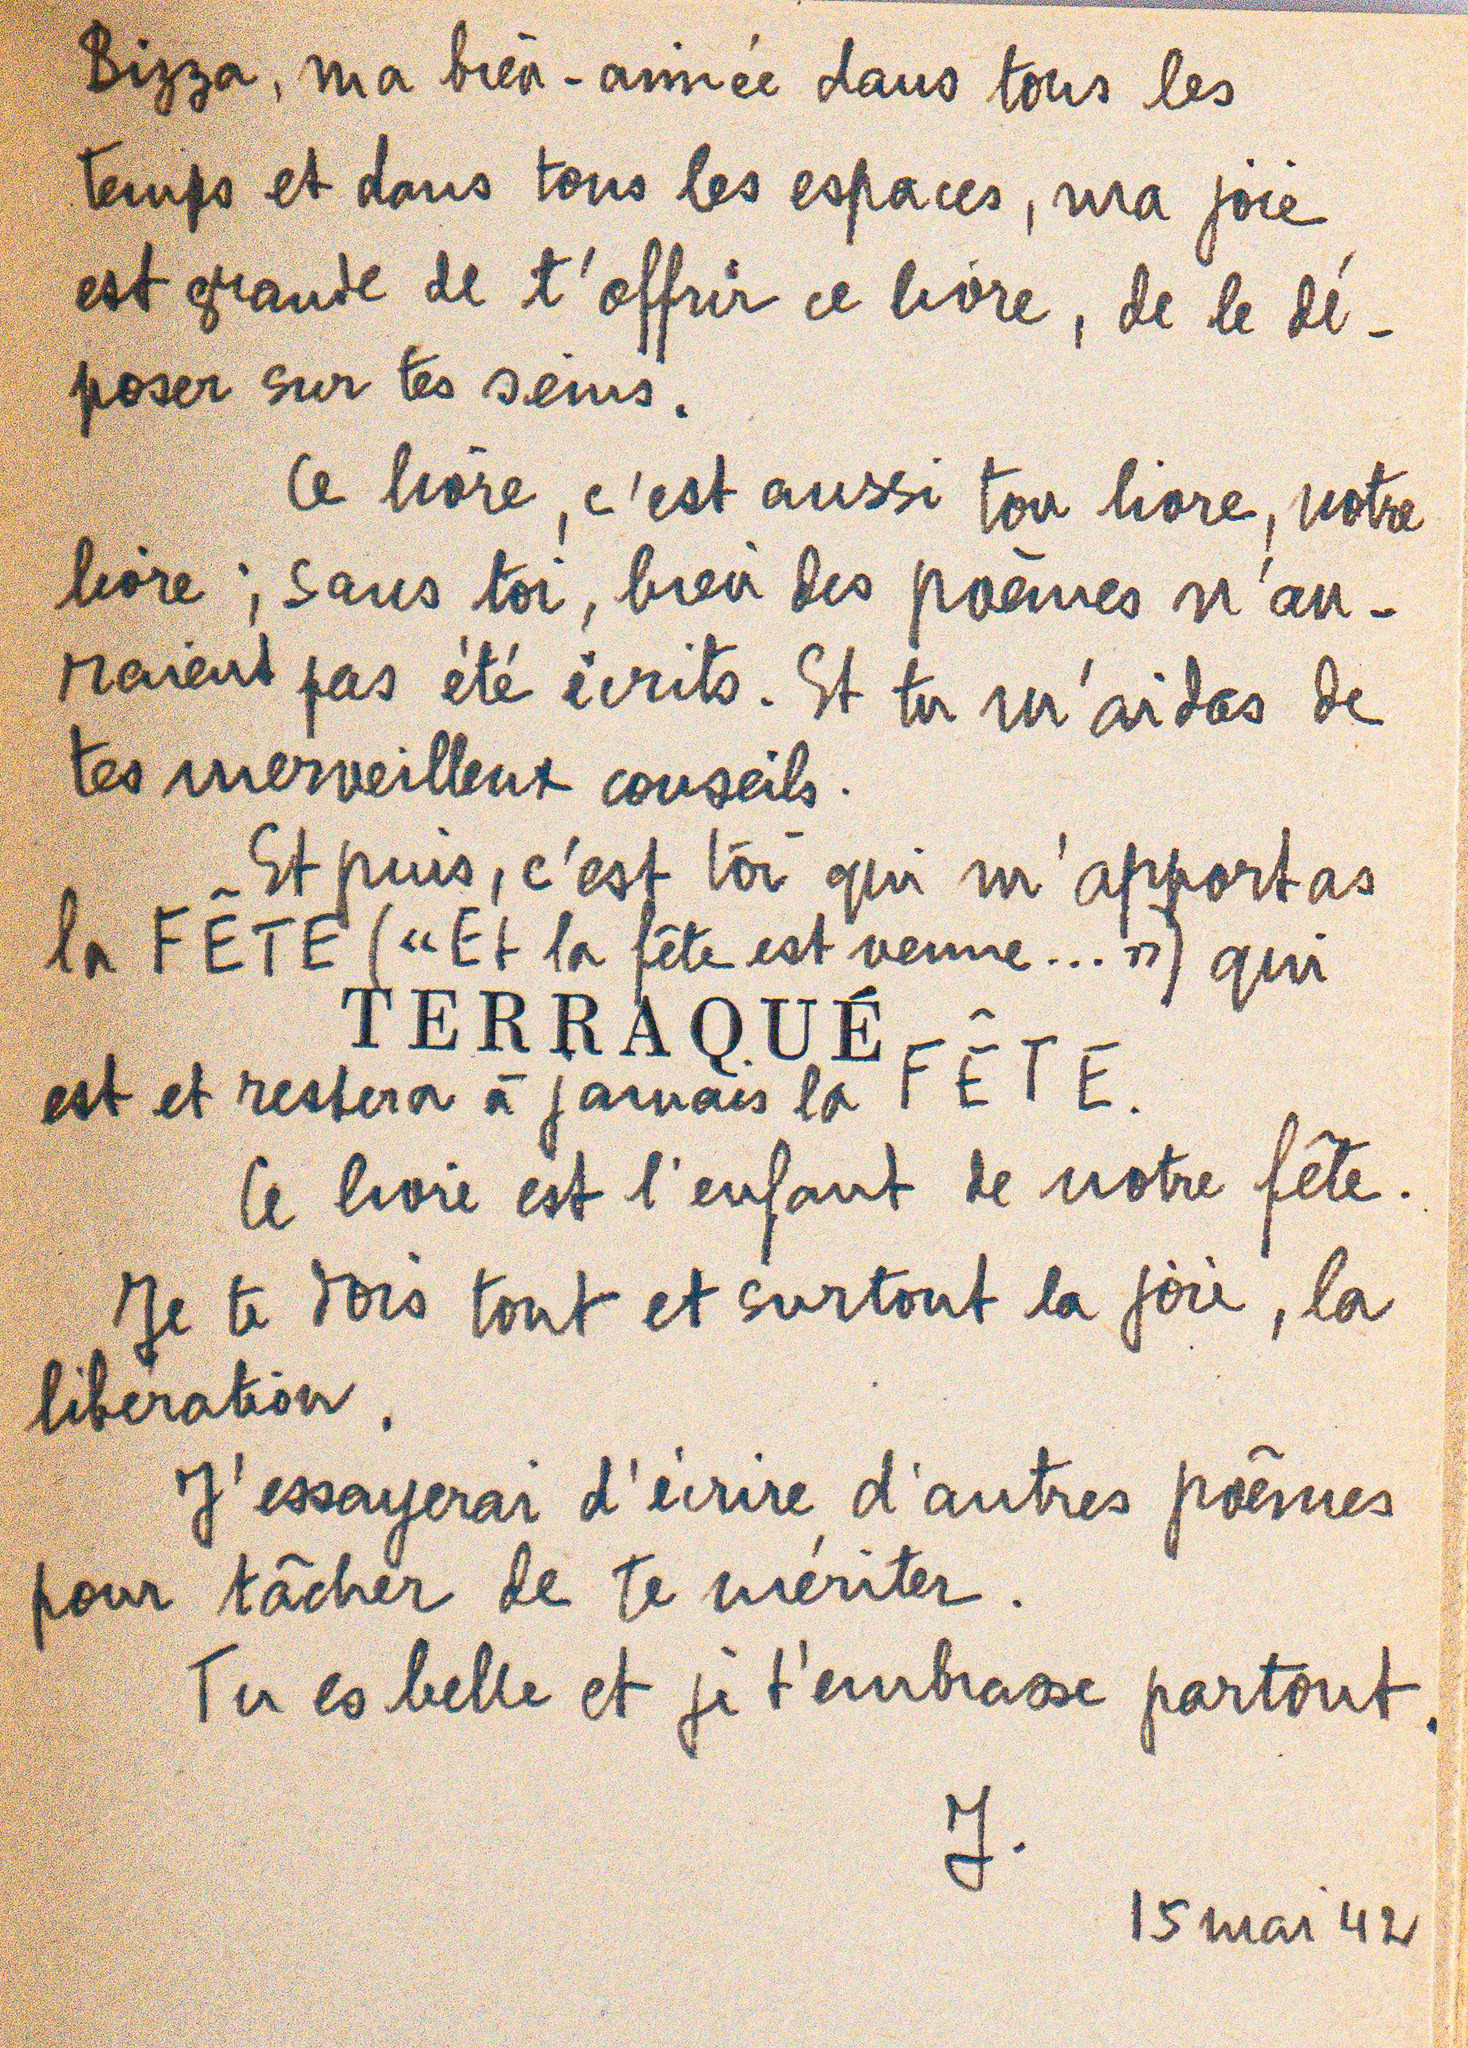 Bizza, ma bien-aimée dans tous les
temps et dans tous les espaces, ma joie
est grande de t'offrir ce livre, de le dé-
poser sur tes seins.
Ce livre, c'est aussi ton livre, notre
livre ; sans toi, bien des poèmes n'au-
raient pas été écrits. Et tu m'aidas de
tes merveilleux conseils.
Et puis, c'est toi qui m'apportas
la FÊTE (« Et la fête est venue... ») qui
TERRAQUÉ
est et restera à jamais la FÊTE.
Ce livre est l'enfant de notre fête.
Je te dois tout et surtout la joie, la
libération.
J'essayerai d'écrire d'autres poèmes
pour tâcher de te mériter.
Tu es belle et je t'embrasse partout.
J.
15 mai 42